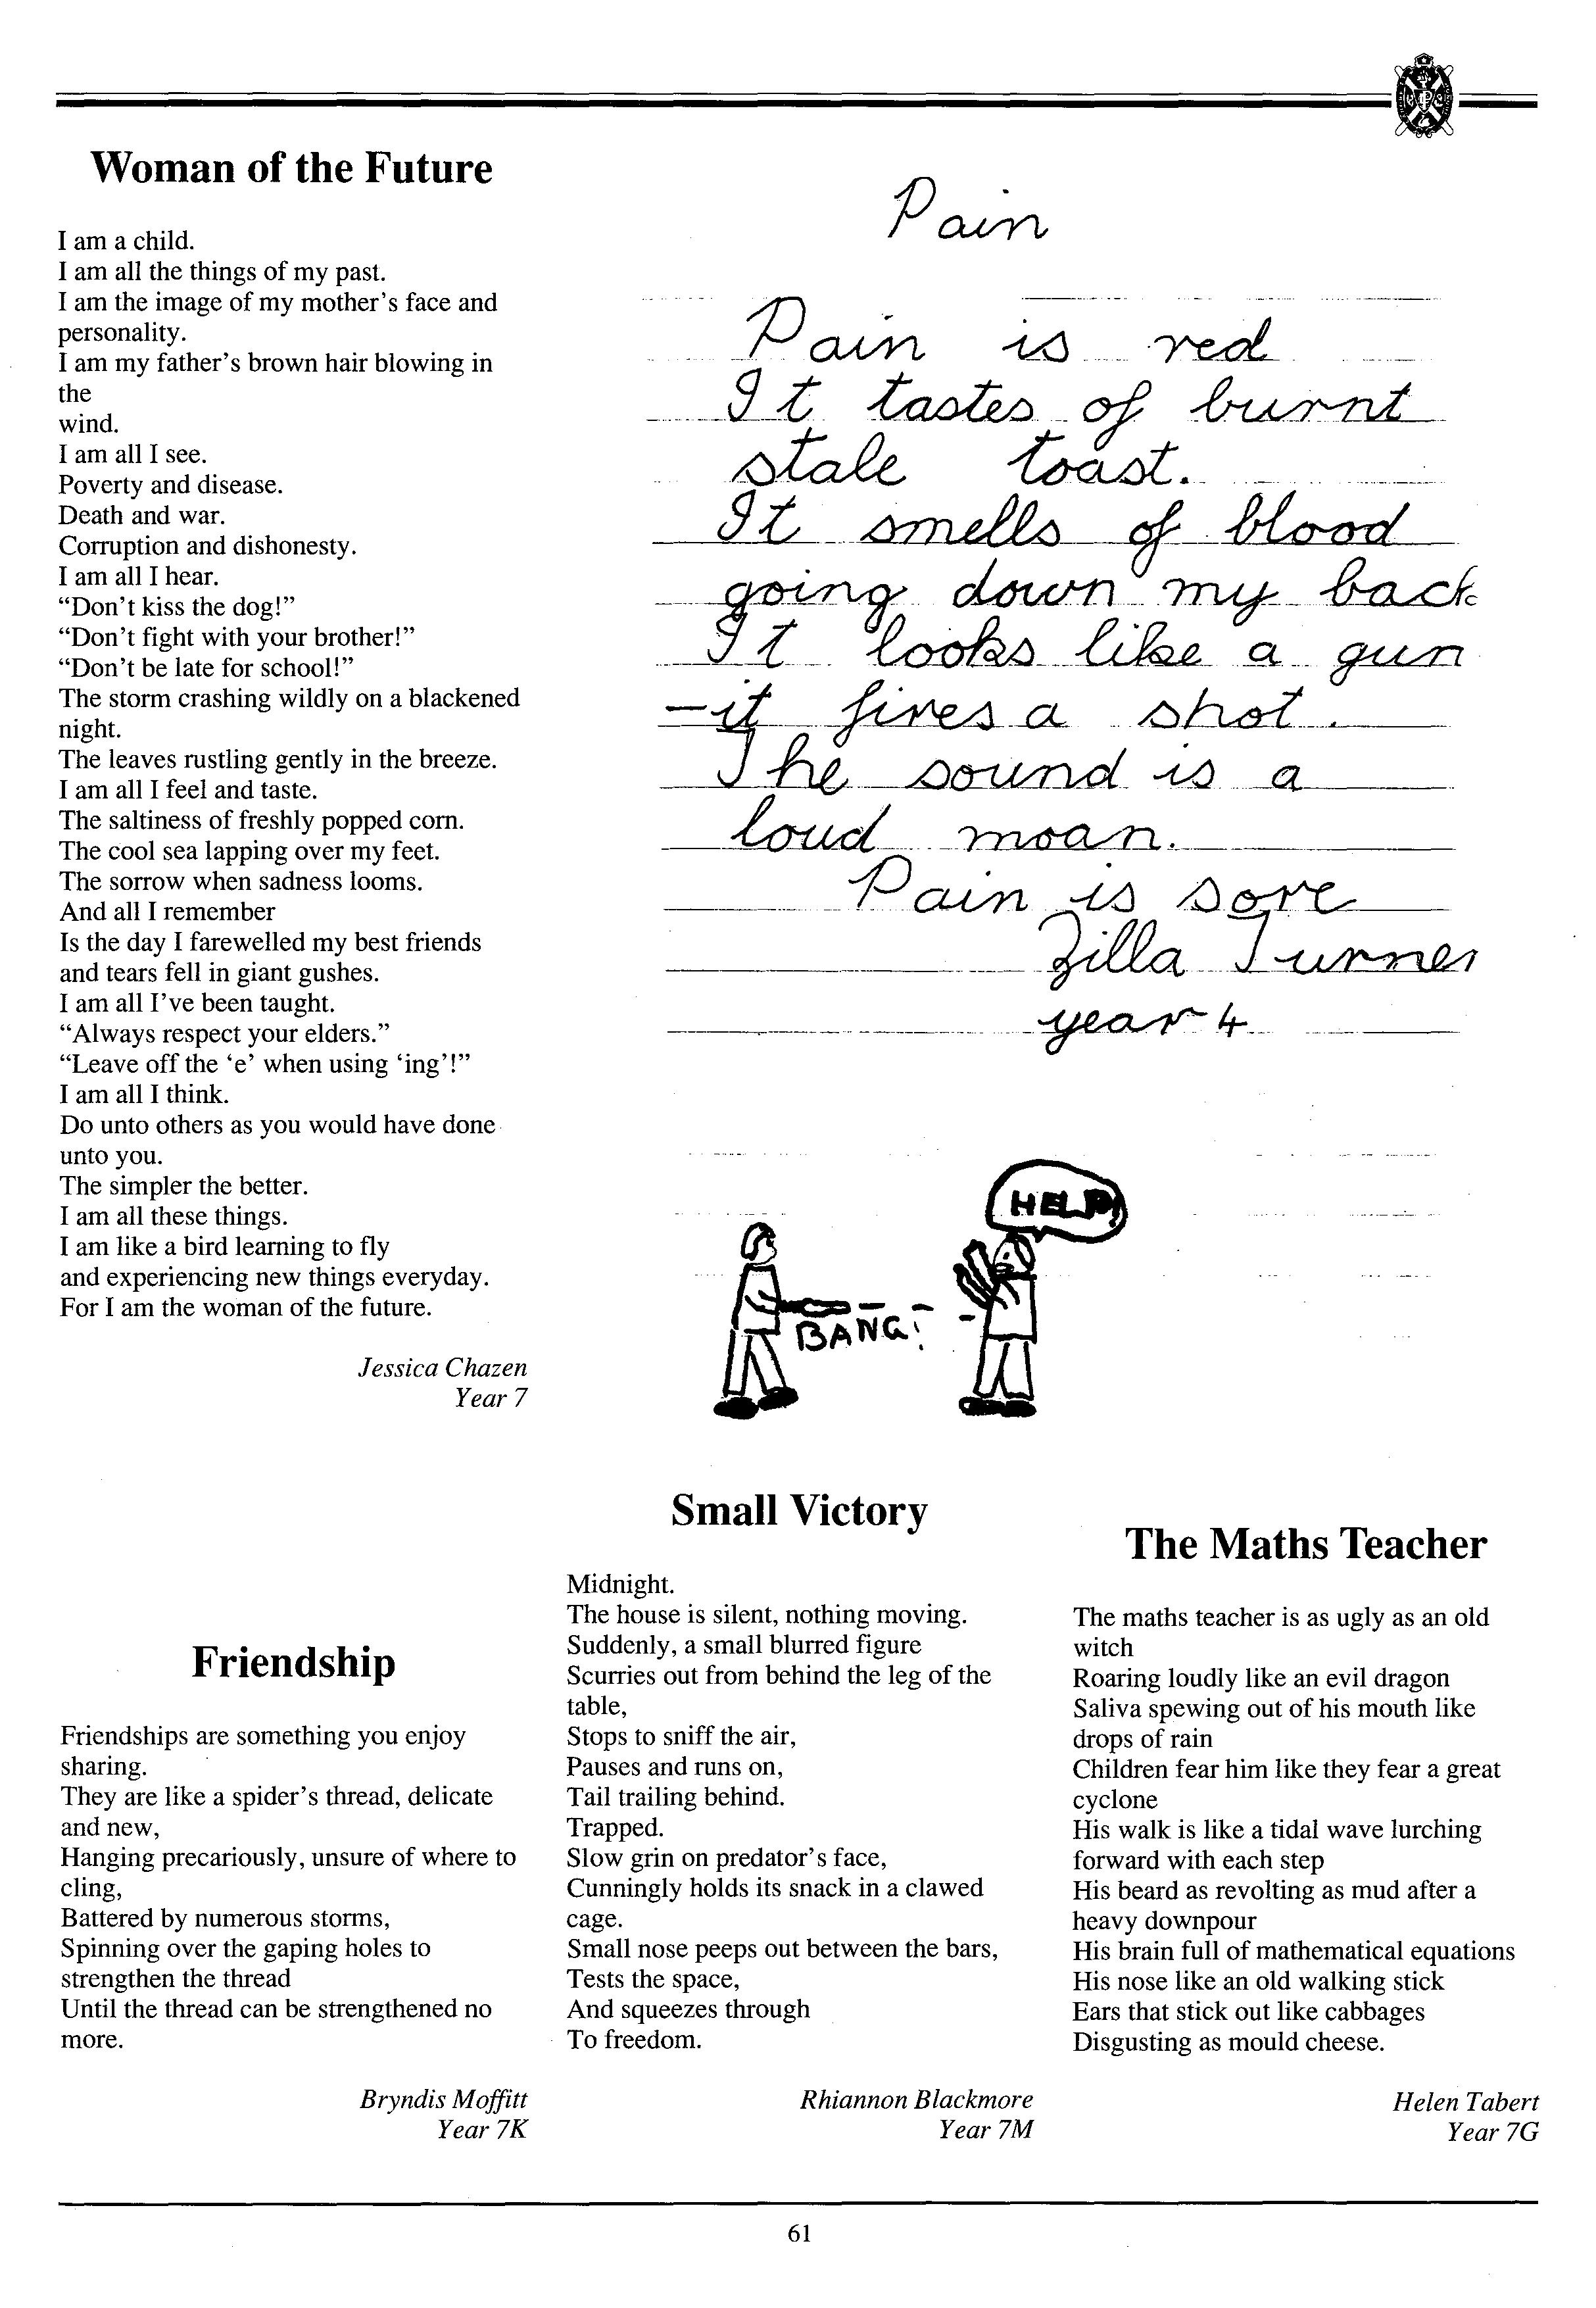 Woman of the Future
I am a child.
I am all the things of my past.
I am the image of my mother's face and
personality.
I am my father's brown hair blowing in
the
wind.
I am all I see.
Poverty and disease.
Death and war.
Corruption and dishonesty.
I am all I hear.
“Don't kiss the dog!”
“Don't fight with your brother!”
“Don't be late for school!”
The storm crashing wildly on a blackened
night.
The leaves rustling gently in the breeze.
I am all I feel and taste.
The saltiness of freshly popped corn.
The cool sea lapping over my feet.
The sorrow when sadness looms.
And all I remember
Is the day I farewelled my best friends
and tears fell in giant gushes.
I am all I've been taught.
“Always respect your elders.”
“Leave off the ‘e’ when using ‘ing’!”
I am all I think.
Do unto others as you would have done
unto you.
The simpler the better.
I am all these things.
I am like a bird learning to fly
and experiencing new things everyday.
For I am the woman of the future.
Jessica Chazen
Year 7
Pain
Pain is red
It tastes of burnt
stale toast.
It smells of blood
going down my back
It looks like a gun
-it fires a shot.
The sound is a
loud moan.
Pain is sore
Zilla Turner
year 4
HELP!
BANG!
Friendship
Friendships are something you enjoy
sharing.
They are like a spider's thread, delicate
and new,
Hanging precariously, unsure of where to
cling,
Battered by numerous storms,
Spinning over the gaping holes to
strengthen the thread
Until the thread can be strengthened no
more.
Bryndis Moffitt
Year 7K
Small Victory
Midnight.
The house is silent, nothing moving.
Suddenly, a small blurred figure
Scurries out from behind the leg of the
table,
Stops to sniff the air,
Pauses and runs on,
Tail trailing behind.
Trapped.
Slow grin on predator's face,
Cunningly holds its snack in a clawed
cage.
Small nose peeps out between the bars,
Tests the space,
And squeezes through
To freedom.
Rhiannon Blackmore
Year 7M
The Maths Teacher
The maths teacher is as ugly as an old
witch
Roaring loudly like an evil dragon
Saliva spewing out of his mouth like
drops of rain
Children fear him like they fear a great
cyclone
His walk is like a tidal wave lurching
forward with each step
His beard as revolting as mud after a
heavy downpour
His brain full of mathematical equations
His nose like an old walking stick
Ears that stick out like cabbages
Disgusting as mould cheese.
Helen Tabert
Year 7G
61